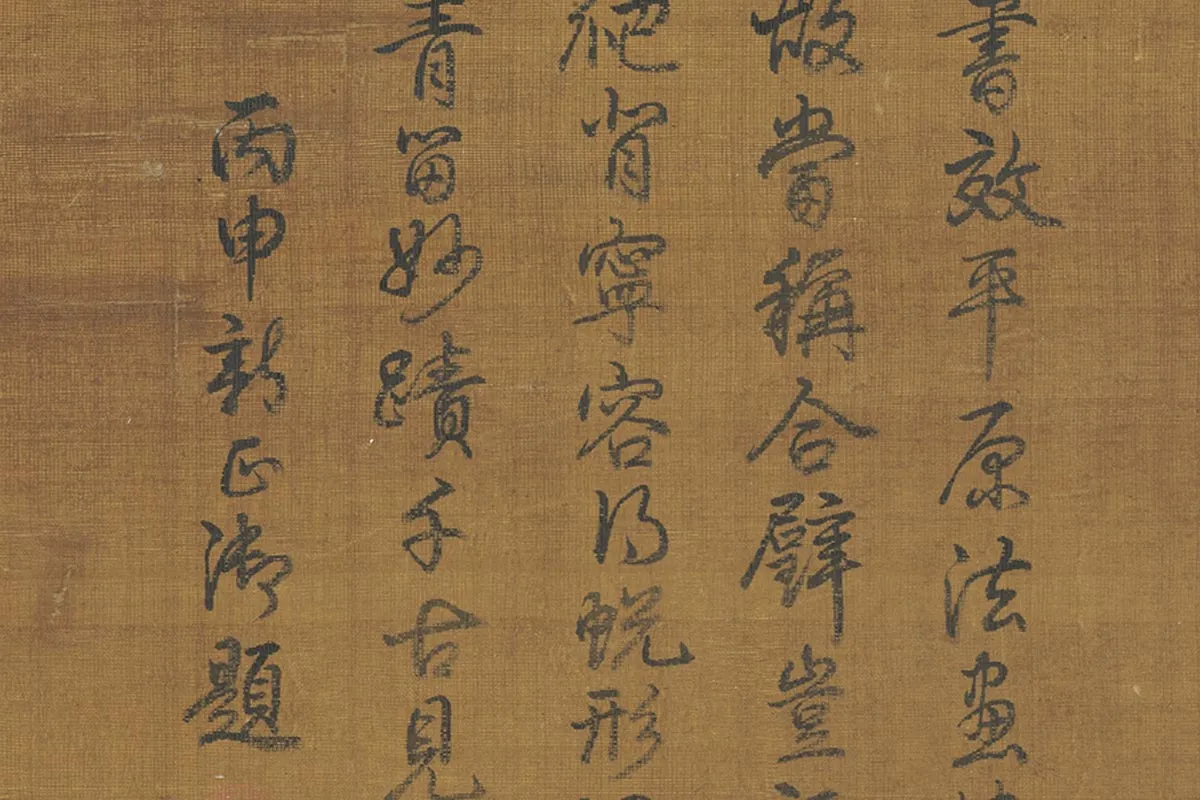 書效平原法畫
做當稱合璧豈
爬背寧容得蛻形
青留妙蹟千古見
丙申新正御題